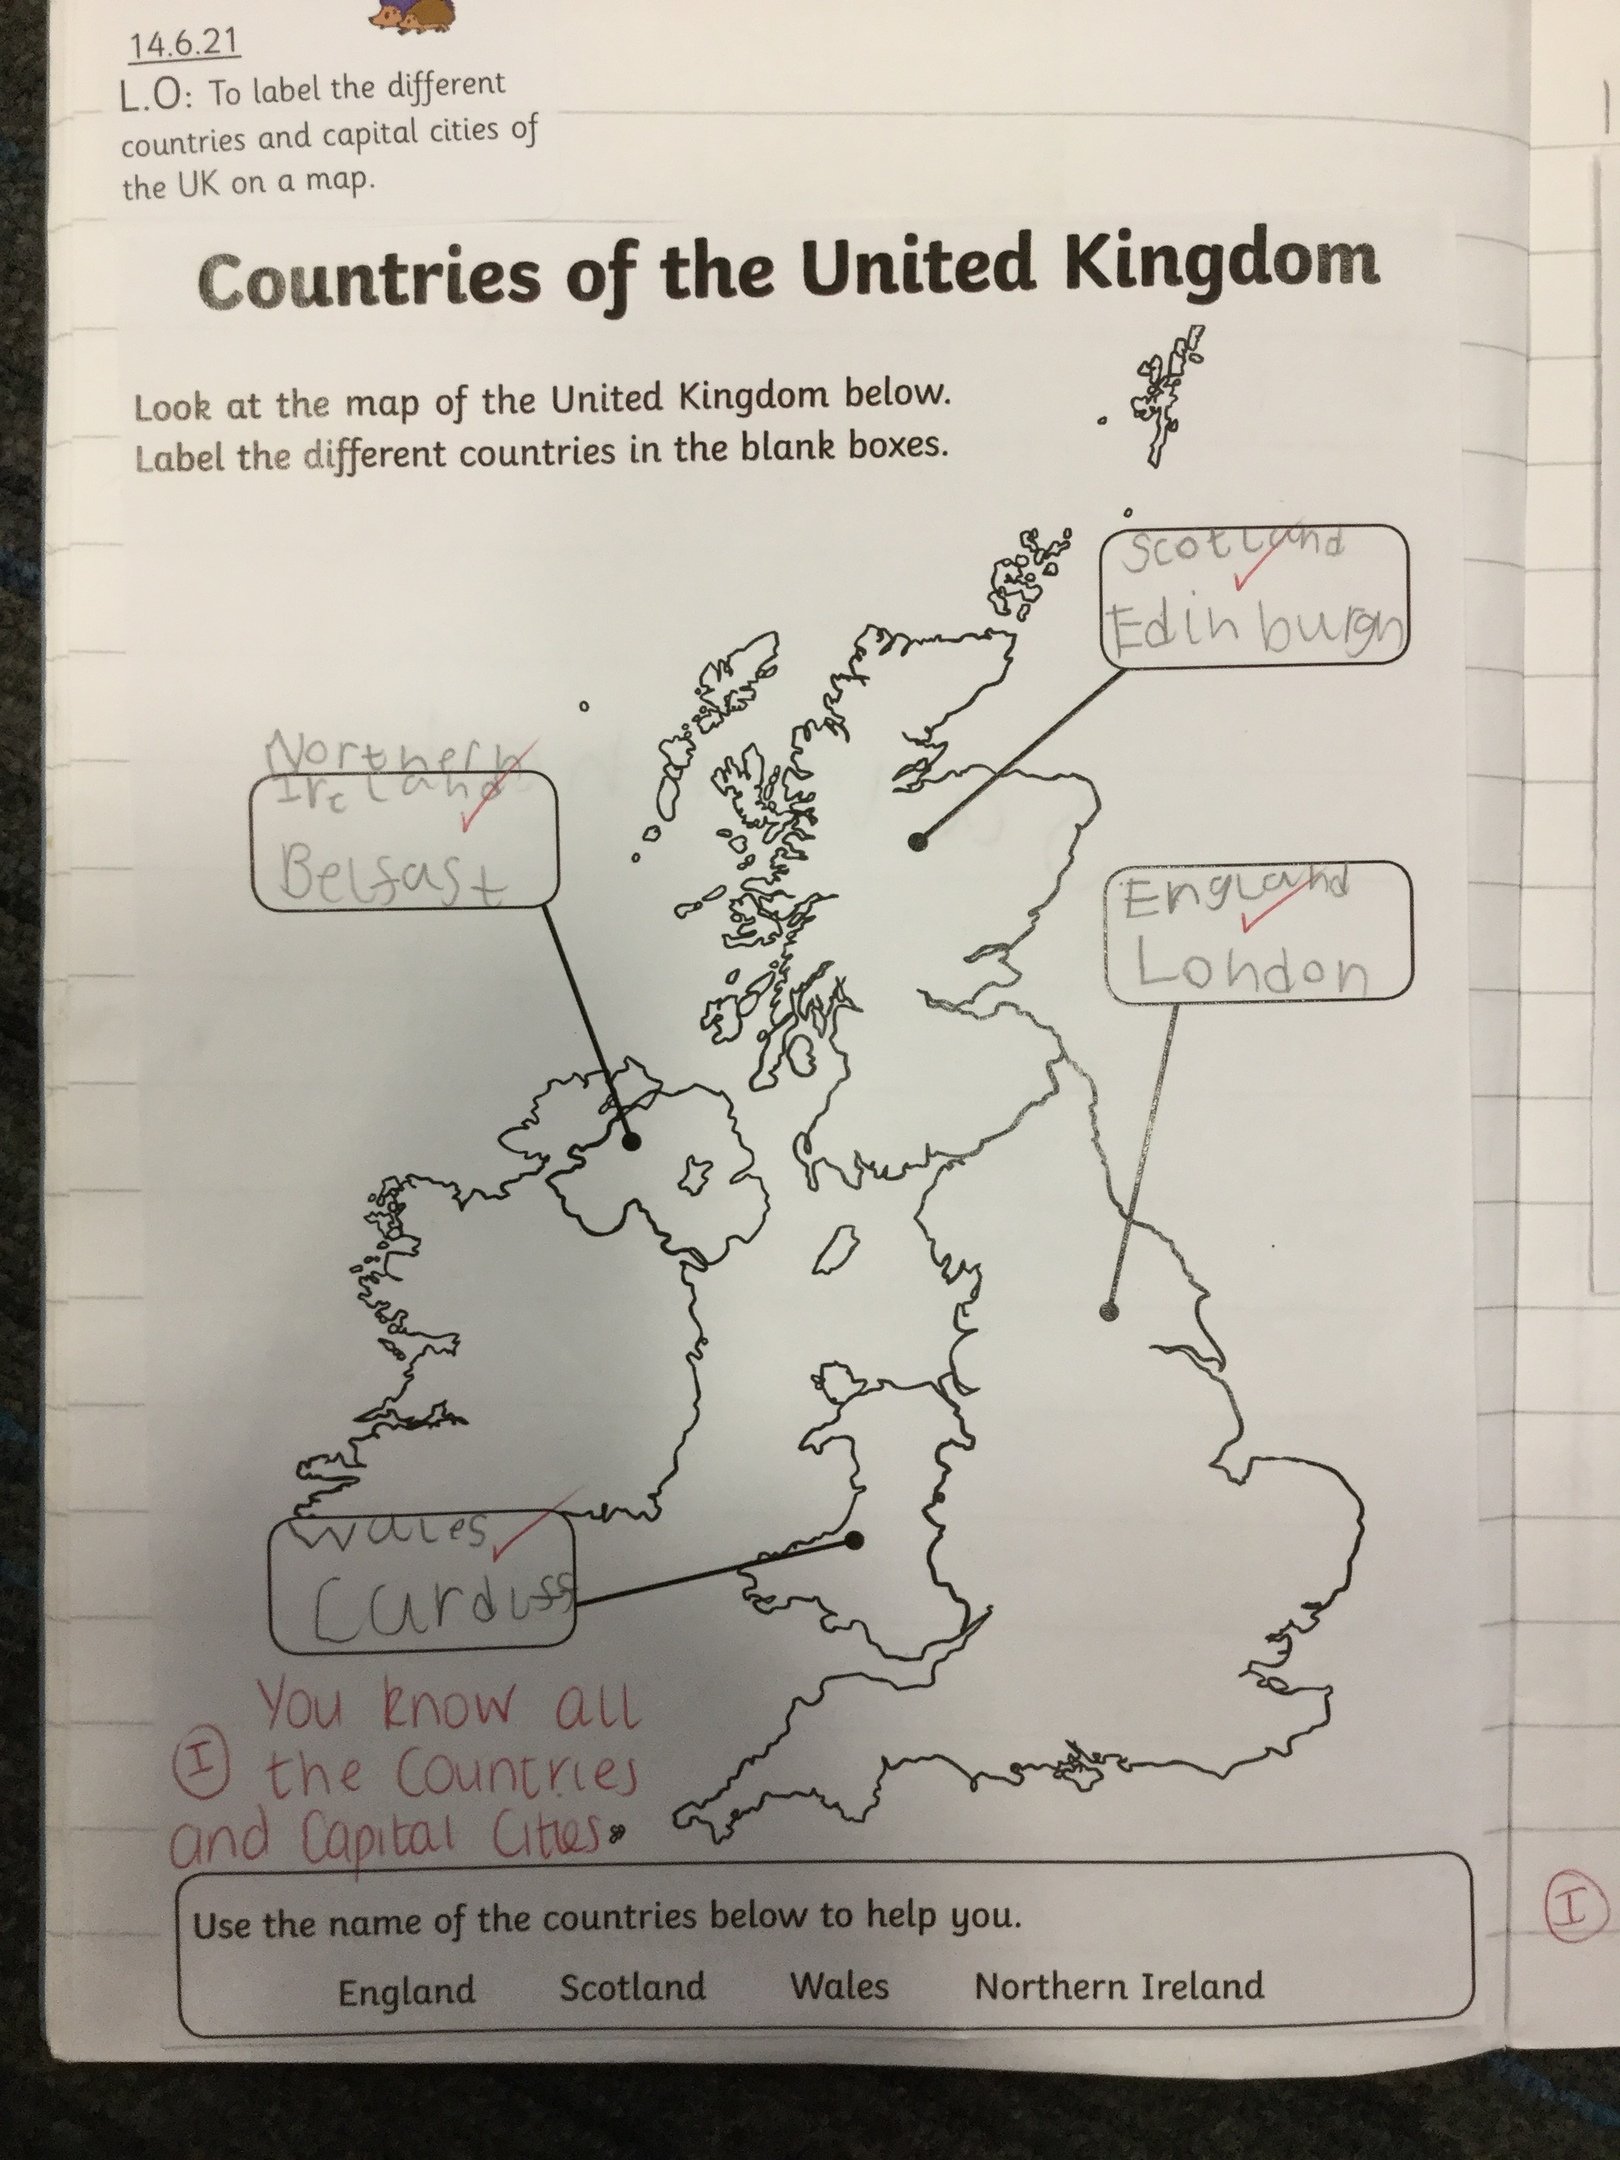 14.6.21
L.O: To label the different
countries and capital cities of
the UK on a map.
Countries of the United Kingdom
Look at the map of the United Kingdom below.
Label the different countries in the blank boxes.
Scotland
Edinburgh
Northern
Ireland
Belfast
England
London
Wales
Cardiff
You know all
I the Countries
and Capital Cities.
Use the name of the countries below to help you.
England Scotland Wales Northern Ireland
I